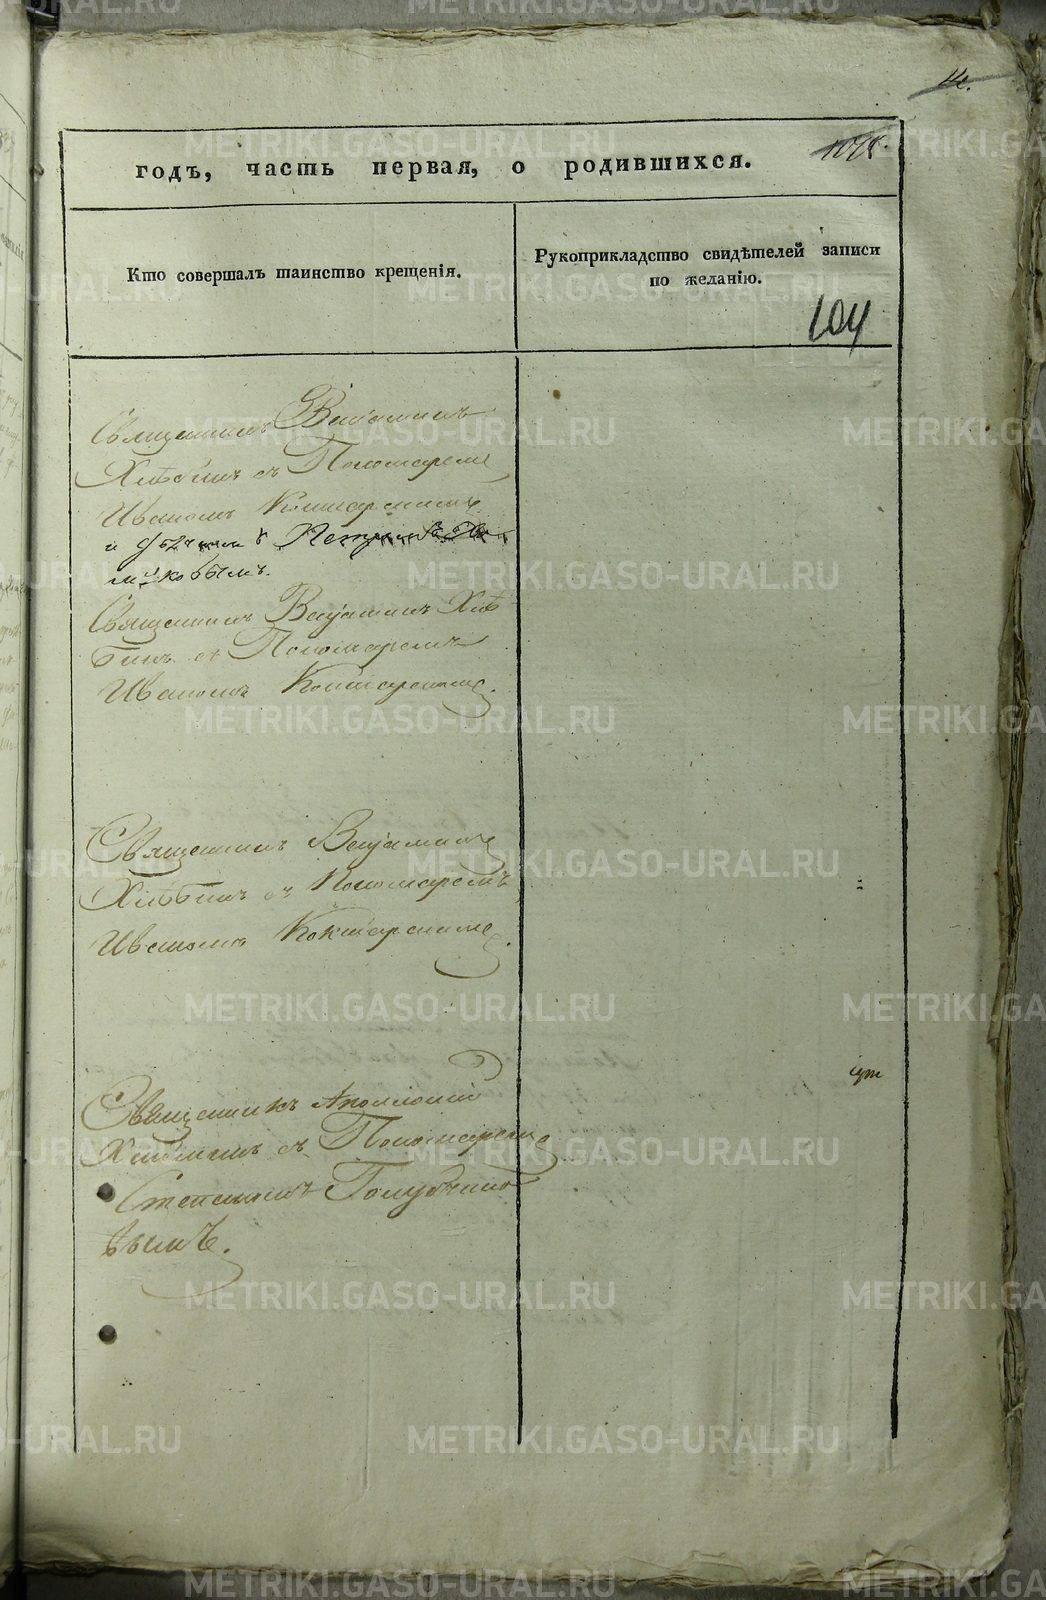 годъ, часть первая, о родившихся.
104
Кто совершалъ таинство крещенія.
Рукоприкладство свидѣтелей записи
по желанію.
Священникъ Веніаминъ
Хлѣбинъ съ Пономаремъ
Иваномъ Коктарскимъ
и
Священникъ Веніаминъ Хлѣ
бинъ съ Пономаремъ
Иваномъ Коктарскимъ.
Священникъ Веніаминъ
Хлѣбинъ съ Пономаремъ
Иваномъ Коктарскимъ.
Священникъ Аполлоній
съ Пономаремъ
Степаномъ
вымъ.
METRIKI.GASO-URAL.RU